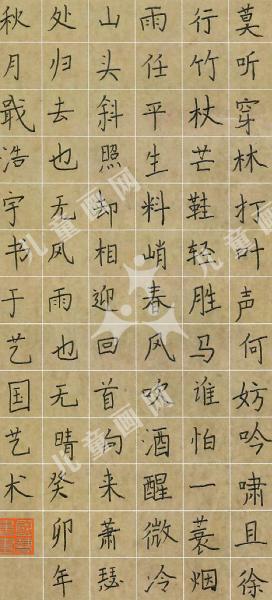 莫听穿林打叶声何妨吟啸且徐
行竹杖芒鞋轻胜马谁怕一蓑烟
雨任平生料峭春风吹酒醒微冷
山头斜照却相迎回首向来萧瑟
处归去也无风雨也无晴癸卯年
秋月浩宇书于艺国艺术
儿童画网
儿童画网
儿童画网
儿童画网